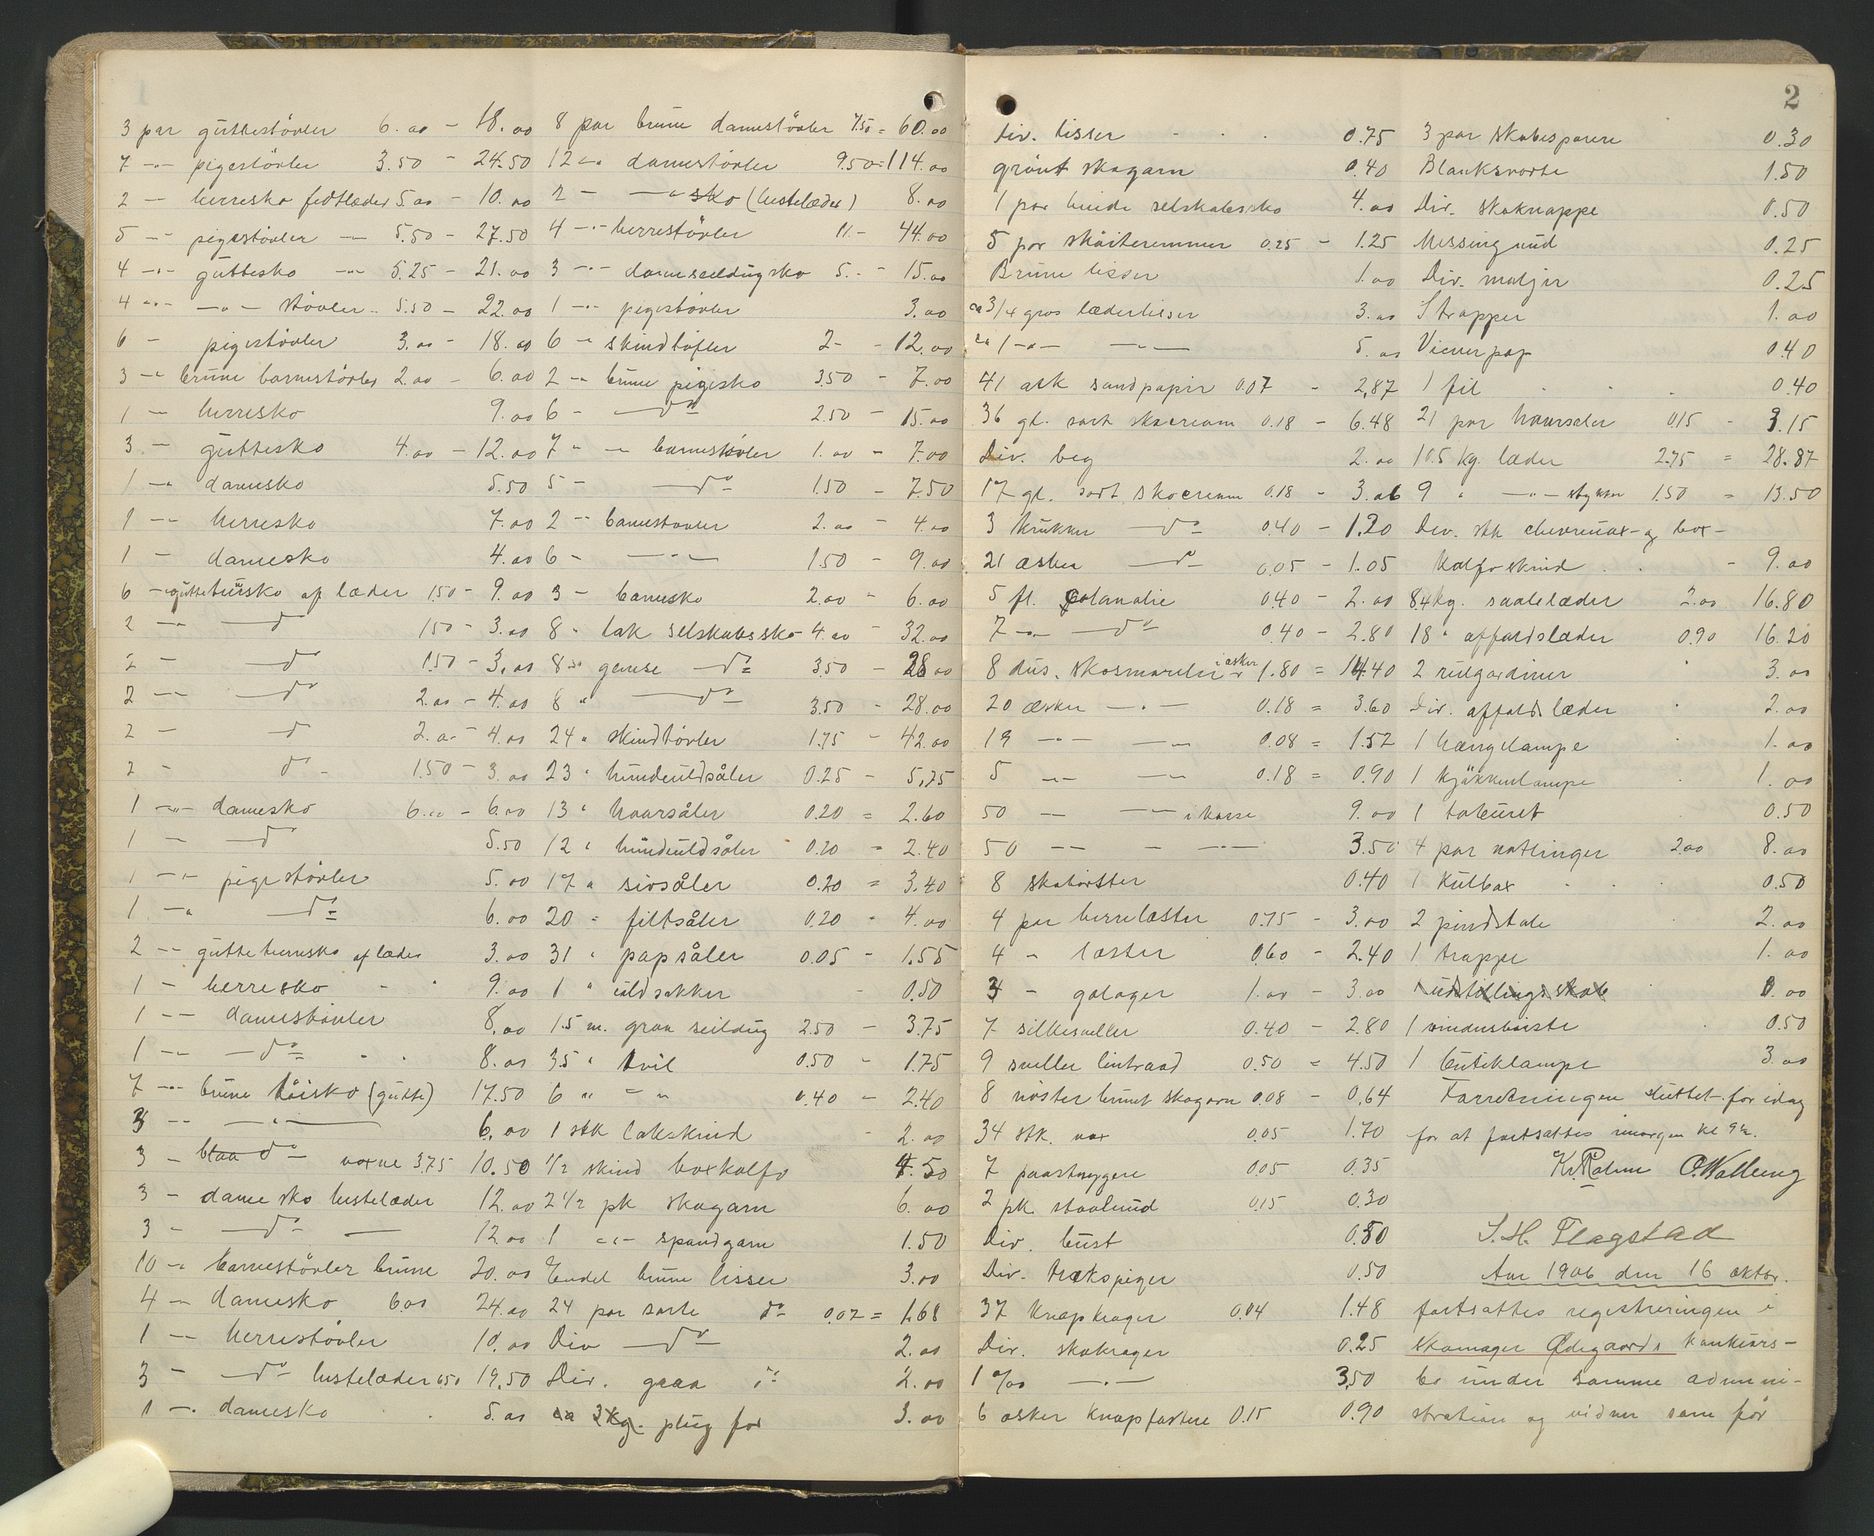 3 par guttestövler 6.00 - 18.00
7 -"- pigestövler 3.50 - 24.50
2 - herresko fedtlæder 5.00 - 10.00
5 -"- pigestövler -"- 5.50 - 27.50
4 -"- guttesko -"- 5.25 - 21.00
4 -"- -"- stövler 5.50 - 22.00
6 - pigestövler 3.00 - 18.00
3 -"- brune barnestövler 2.00 - 6.00
1 - herresko 9.00
3 - guttesko 4.00 - 12.00
1 -"- damesko 5.50
1 -"- herresko 7.00
1 - damesko 4.00
6 - guttetursko af læder 1.50 - 9.00
2 -"- do 1.50 - 3.00
2 - do 1.50 - 3.00
2 -"- do 2.00 - 4.00
2 - do 2.00 - 4.00
2 - do - 1.50 - 3.00
1 -"- damesko 6.00 - 6.00
1 - do 5.50
1 -"- pigestövler 5.00
1 -"- do 6.00
2 -"- gutteturnsko af læder 3.00
1 - herresko - " 9.00
1 -- damestövler 8.00
1 -"- do 8.00
7 -"- brune (gutte) 17.50
3 -- -"- 6.00
3 - do voxne 3.75 10.50
3 - dame sko lustelæder 12.00
3 - do - 12.00
10 -"- barnestövler brune 20.00
4 - damesko 6.00 24.00
1 -- herrestövler 10.00
3 - do lustelæder 6.50 19.50
1 -. damesko 5.00
8 par brune damestövler 7.50 = 60.00
12 -"- damestövler 9.50 = 114.00
2 - -"- sko (lustelæder) 8.00
4 -"- herrestövler 11.- 44.00
3 -"- dameseildugsko 5.- - 15.00
1 -"- pigestövler 3.00
6 -"- skindtöfler 2- - 12.00
2 -"- brune pigesko 3.50 - 7.00
6 - do 2.50 - 15.00
7 " -"- barnestövler 1.00 - 7.00
5 - do 1.50 - 7.50
2 -"- barnestövler 2.00 - 4.00
6 - -"- 1.50 - 9.00
3 - barnesko 2.00 - 6.00
8 " lak selskabssko 4.00 - 32.00
8 " gemse do 3.50 - 28.00
8 " do 3.50 - 28.00
24 " skindtövler 1.75 - 42.00
23 " hundeuldsåler 0.25 - 5.75
13 " haarsåler 0.20 = 2.60
12 " hundeuldsåler 0.20 - 2.40
17 " sivsåler 0.20 = 3.40
20 " filtsåler 0.20 - 4.00
31 " papsåler 0.05 - 1.55
1 " uldsokker - 0.50
1.5 m. graa seildug 2.50 - 3.75
3.5 " tvil 0.50 - 1.75
6 " " " 0.40 - 2.40
1 stk lakskind - 2.00
1/2 skind boxkalfs 4.50
2 1/2 pk skogarn 6.00
1 -"- spandgarn 1.50
Endel brune lisser 3.00
24 par sorte do 0.07 = 1.68
Div do 2.00
Div. graa do 2.00
ca 3 kg. plug for 3.00
2
Div. lisser - . . 0.75
grönt skogarn 0.40
1 par hvide selskabssko 4.00
5 par skøiteremmer 0.25 - 1.25
Brune lisser 1.00
ca 3/4 gros læderlisser 3.00
ca 1 -"- -"- 5.00
41 ark sandpapir 0.07 - 2.87
36 gl. sort skocream 0.18 - 6.48
Div. beg 2.00
17 gl. sort skocream 0.18 - 3.06
3 krukker do 0.40 - 1.20
21 æsker do 0.05 - 1.05
5 fl. 0.40 - 2.00
7 -"- do 0.40 - 2.80
8 dus. skosmurelse i æsker 1.80 = 14.40
20 æsker -"- 0.18 = 3.60
19 -"- -"- 0.08 = 1.52
5 -"- -"- 0.18 = 0.90
50 -- -"- i kasse 9.00
50 -- - -"- 3.50
8 skobörster 0.40
4 par herrelæster 0.75 - 3.00
4 " læster 0.60 - 2.40
3 - galoger 1.00 - 3.00
7 silkesneller 0.40 - 2.80
9 sneller lintraad 0.50 = 4.50
8 nöster brunt skogarn 0.08 - 0.64
34 stk. vox 0.05 1.70
7 0.05 0.35
2 pk staaltraad 0.15 0.30
Div. bust 0.50
Div. 0.50
37 knapkroger 0.04 1.48
Div. skokroger 0.25
1 0/00 -"- 3.50
6 æsker knapfæstere 0.15 0.90
3 par skobesparere 0.30
Blanksvorte 1.50
Div. skoknappe 0.50
Messingsand 0.25
Div. maljer 0.25
Strapper 1.00
Vienerpap 0.40
1 fil . . . 0.40
21 par haarsåler 0.15 - 3.15
10.5 kg. læder 2.75 = 28.87
9 " -"- stykker 1.50 = 13.50
Div. stk chevreaux- og box-
kalfsskind . . - 9.00
8.4 kg. saalelæder 2.00 16.80
18 " affaldslæder 0.90 16.20
2 rulgardiner 3.00
Div. affaldslæder 2.00
1 hængelampe 1.00
1 kjökkenlampe 1.00
1 taburet 0.50
4 par nåtlinger 2.00 8.00
1 kulbox . . . 0.50
2 pindstole 2.00
1 trappe 1.00
1 udstillingsskab 0.00
1 vindusbörste 0.50
1 butiklampe 3.00
Forretningen sluttet for idag
for at fortsættes imorgen kl 9 1/2.
Kr. Holm O. Walleng
S. H. Flagstad
Aar 1906 den 16 oktbr.
fortsattes registreringen i
skomager Ødegaards konkurs-
bo under samme admini-
stration og vidner som för